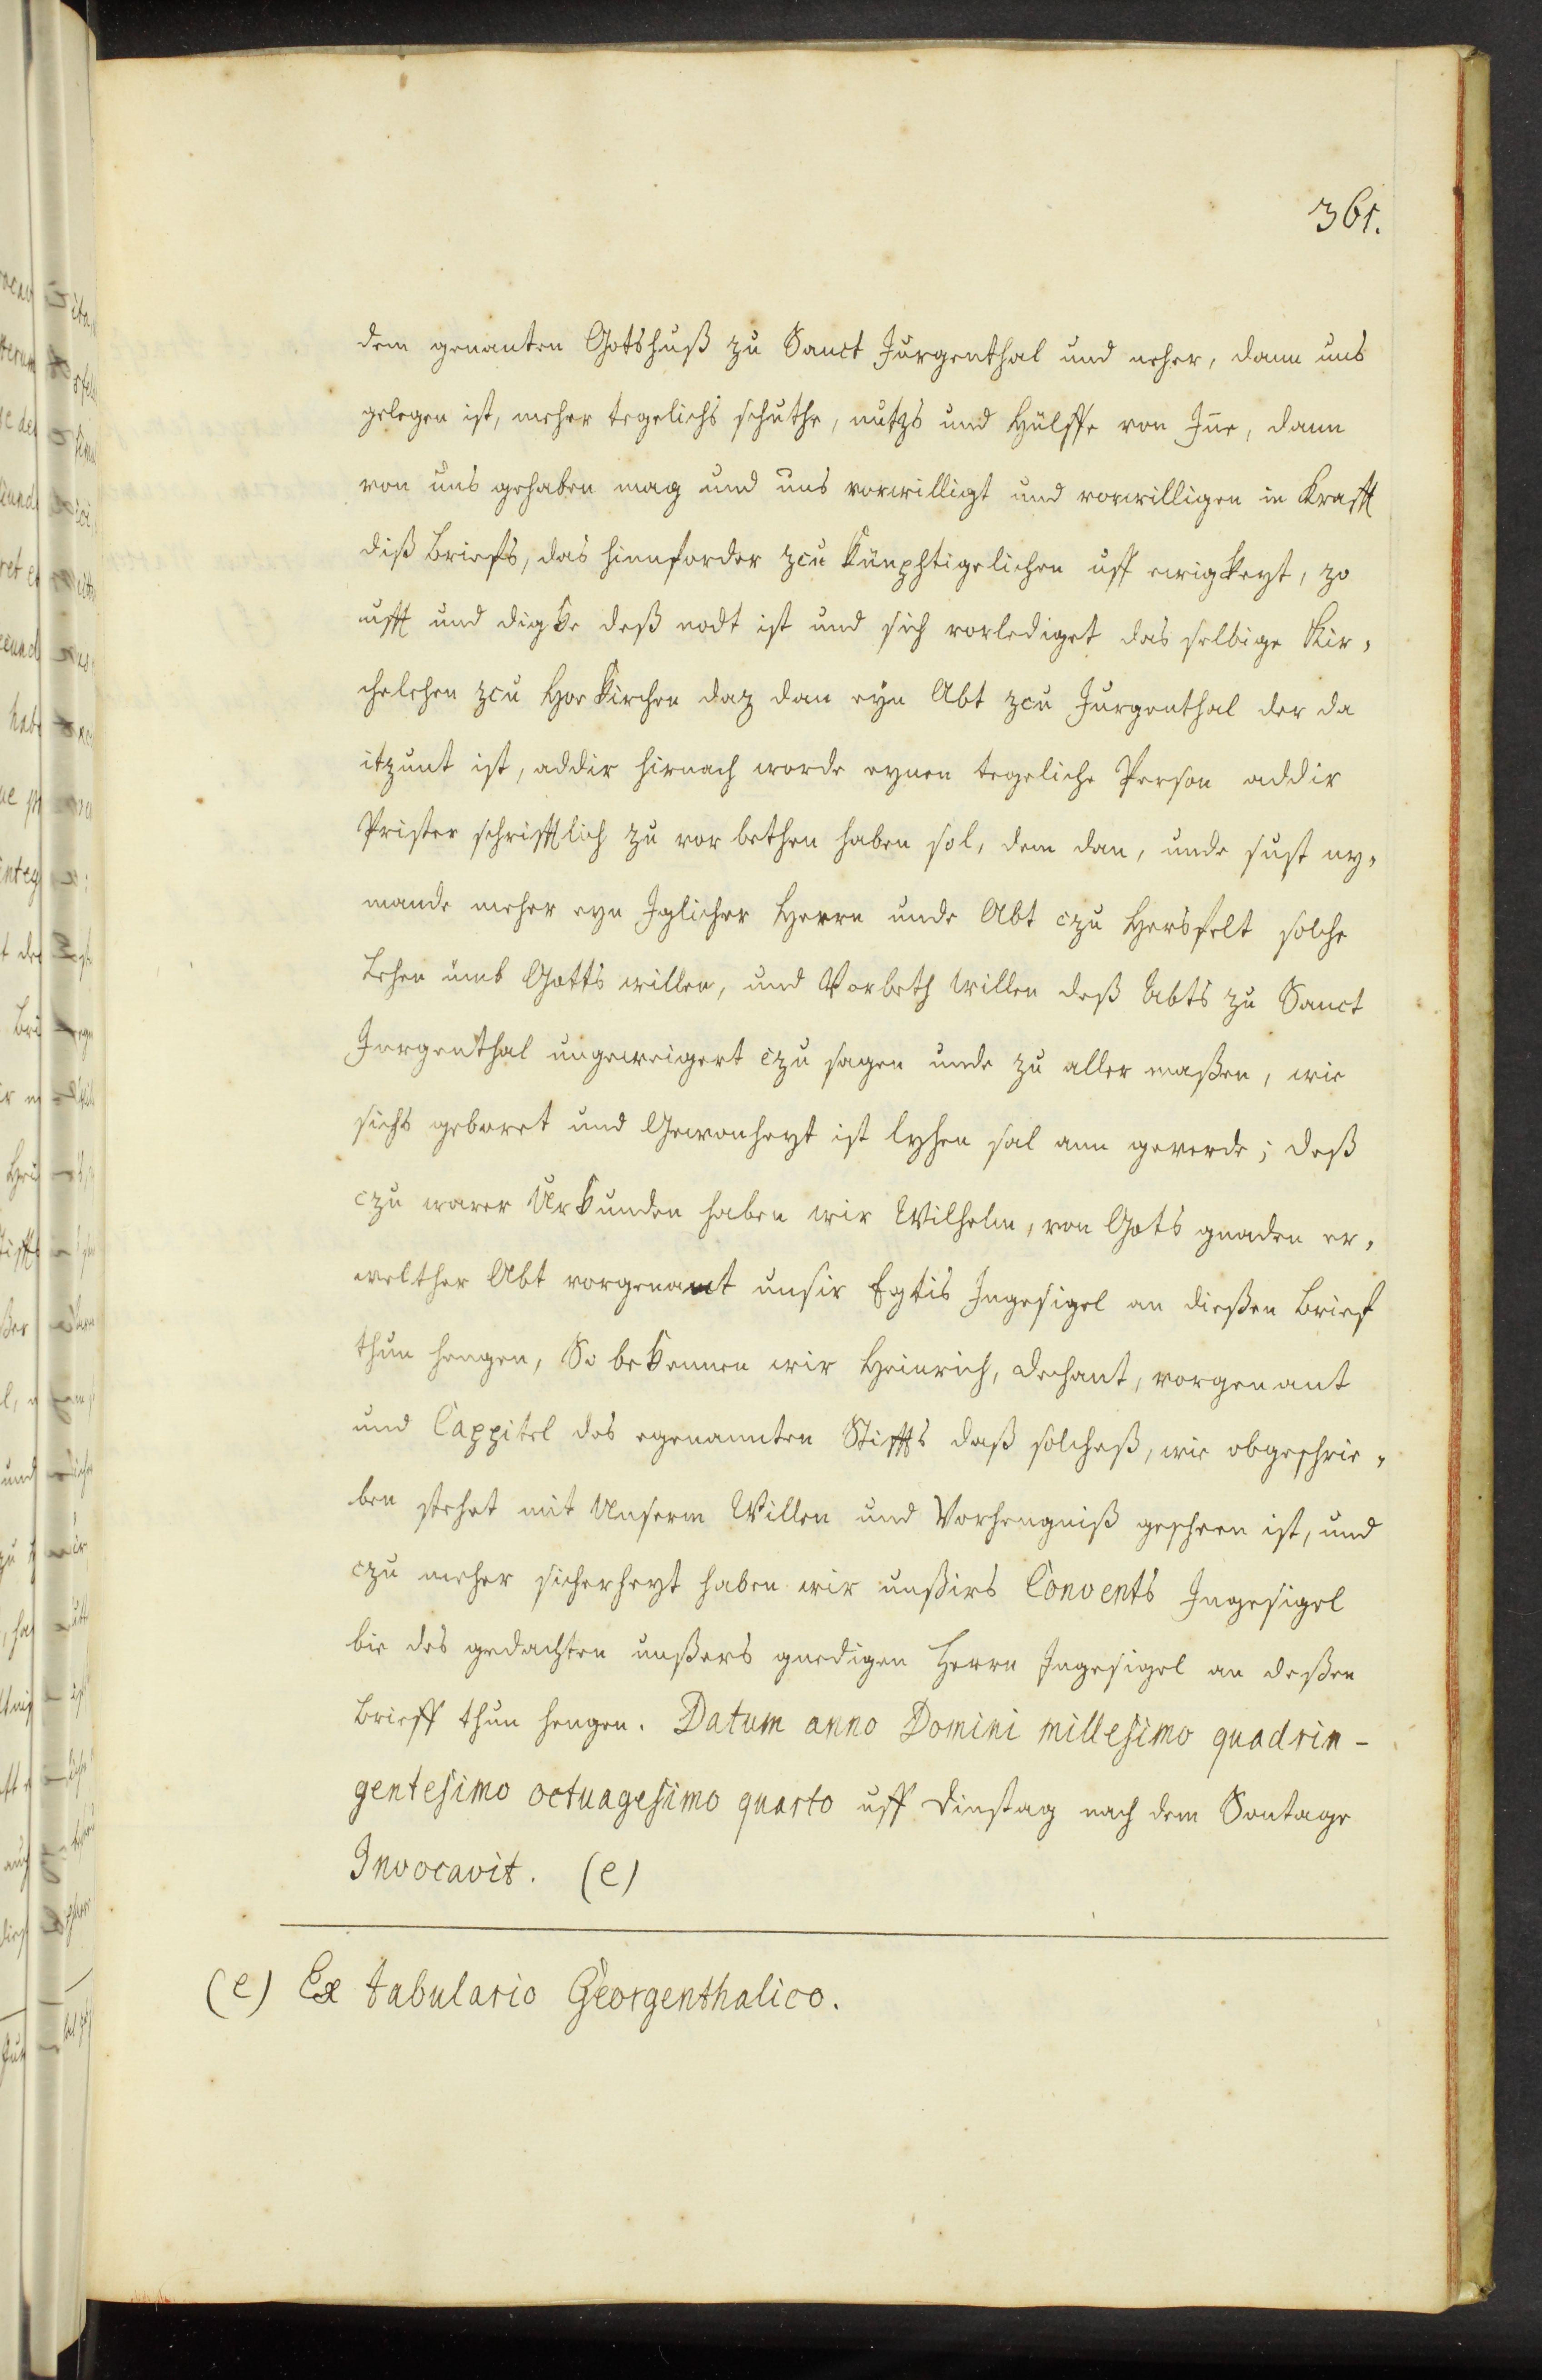 361.
dem genanten Gotshuß zu Sanct Jurgenthal und neher, dann uns
gelegen ist, meher tegelichs schuthe, nutzs und Hülffe von Jne, dann
von uns gehaben mag und uns vorwilligt und vorwilligen in Krafft
diß briefs, das hinnforder zcu künphtigelichen uff ewigkeyt, zo
ufft und digke deß nodt ist und sich vorlediget das selbige Kir-
chelehen zcu Horkirchen daz dan eyn Abt zcu Jurgenthal der da
itzunt ist, addir hirnach worde eynen tegeliche Person addir
Prister schrifftlich zu vor bethen haben sol, dem dan, unde sust ny-
mande meher eyn Jglicher Herrn unde Abt czu Hersfelt solche
Lehen umb Gotts willen, und Vorbeth willen deß Abts zu Sanct
Jorgenthal ungeweigert czu sagen unde zu aller maßen, wie
sichs geboret und Gewonheyt ist lyhen sal ann geverde; deß
czu warer Urkunden haben wir Wilhelm, von Gots gnaden er-
welther Abt vorgenant unsir Egtis Jngesigel an dießen brief
thun hengen, So bekennen wir Heinrich, dechant, vorgenant
und Cappitel des egenannten Stiffts daß solcheß, wie obgeschrie-
ben stehet mit Unserm Willen und Vorhengniß gescheen ist, und
czu meher sicherheyt haben wir unßirs Convents Jngesigel
bie des gedachten unßers gnedigen Herrn Jngesigel an deßen
brieff thun hengen. Datum anno Domini millesimo quadrin-
gentesimo octuagesimo quarto uff dinstag nach dem Sontage
Invocavit. (e)
(e) Ex tabulario Georgenthalico.